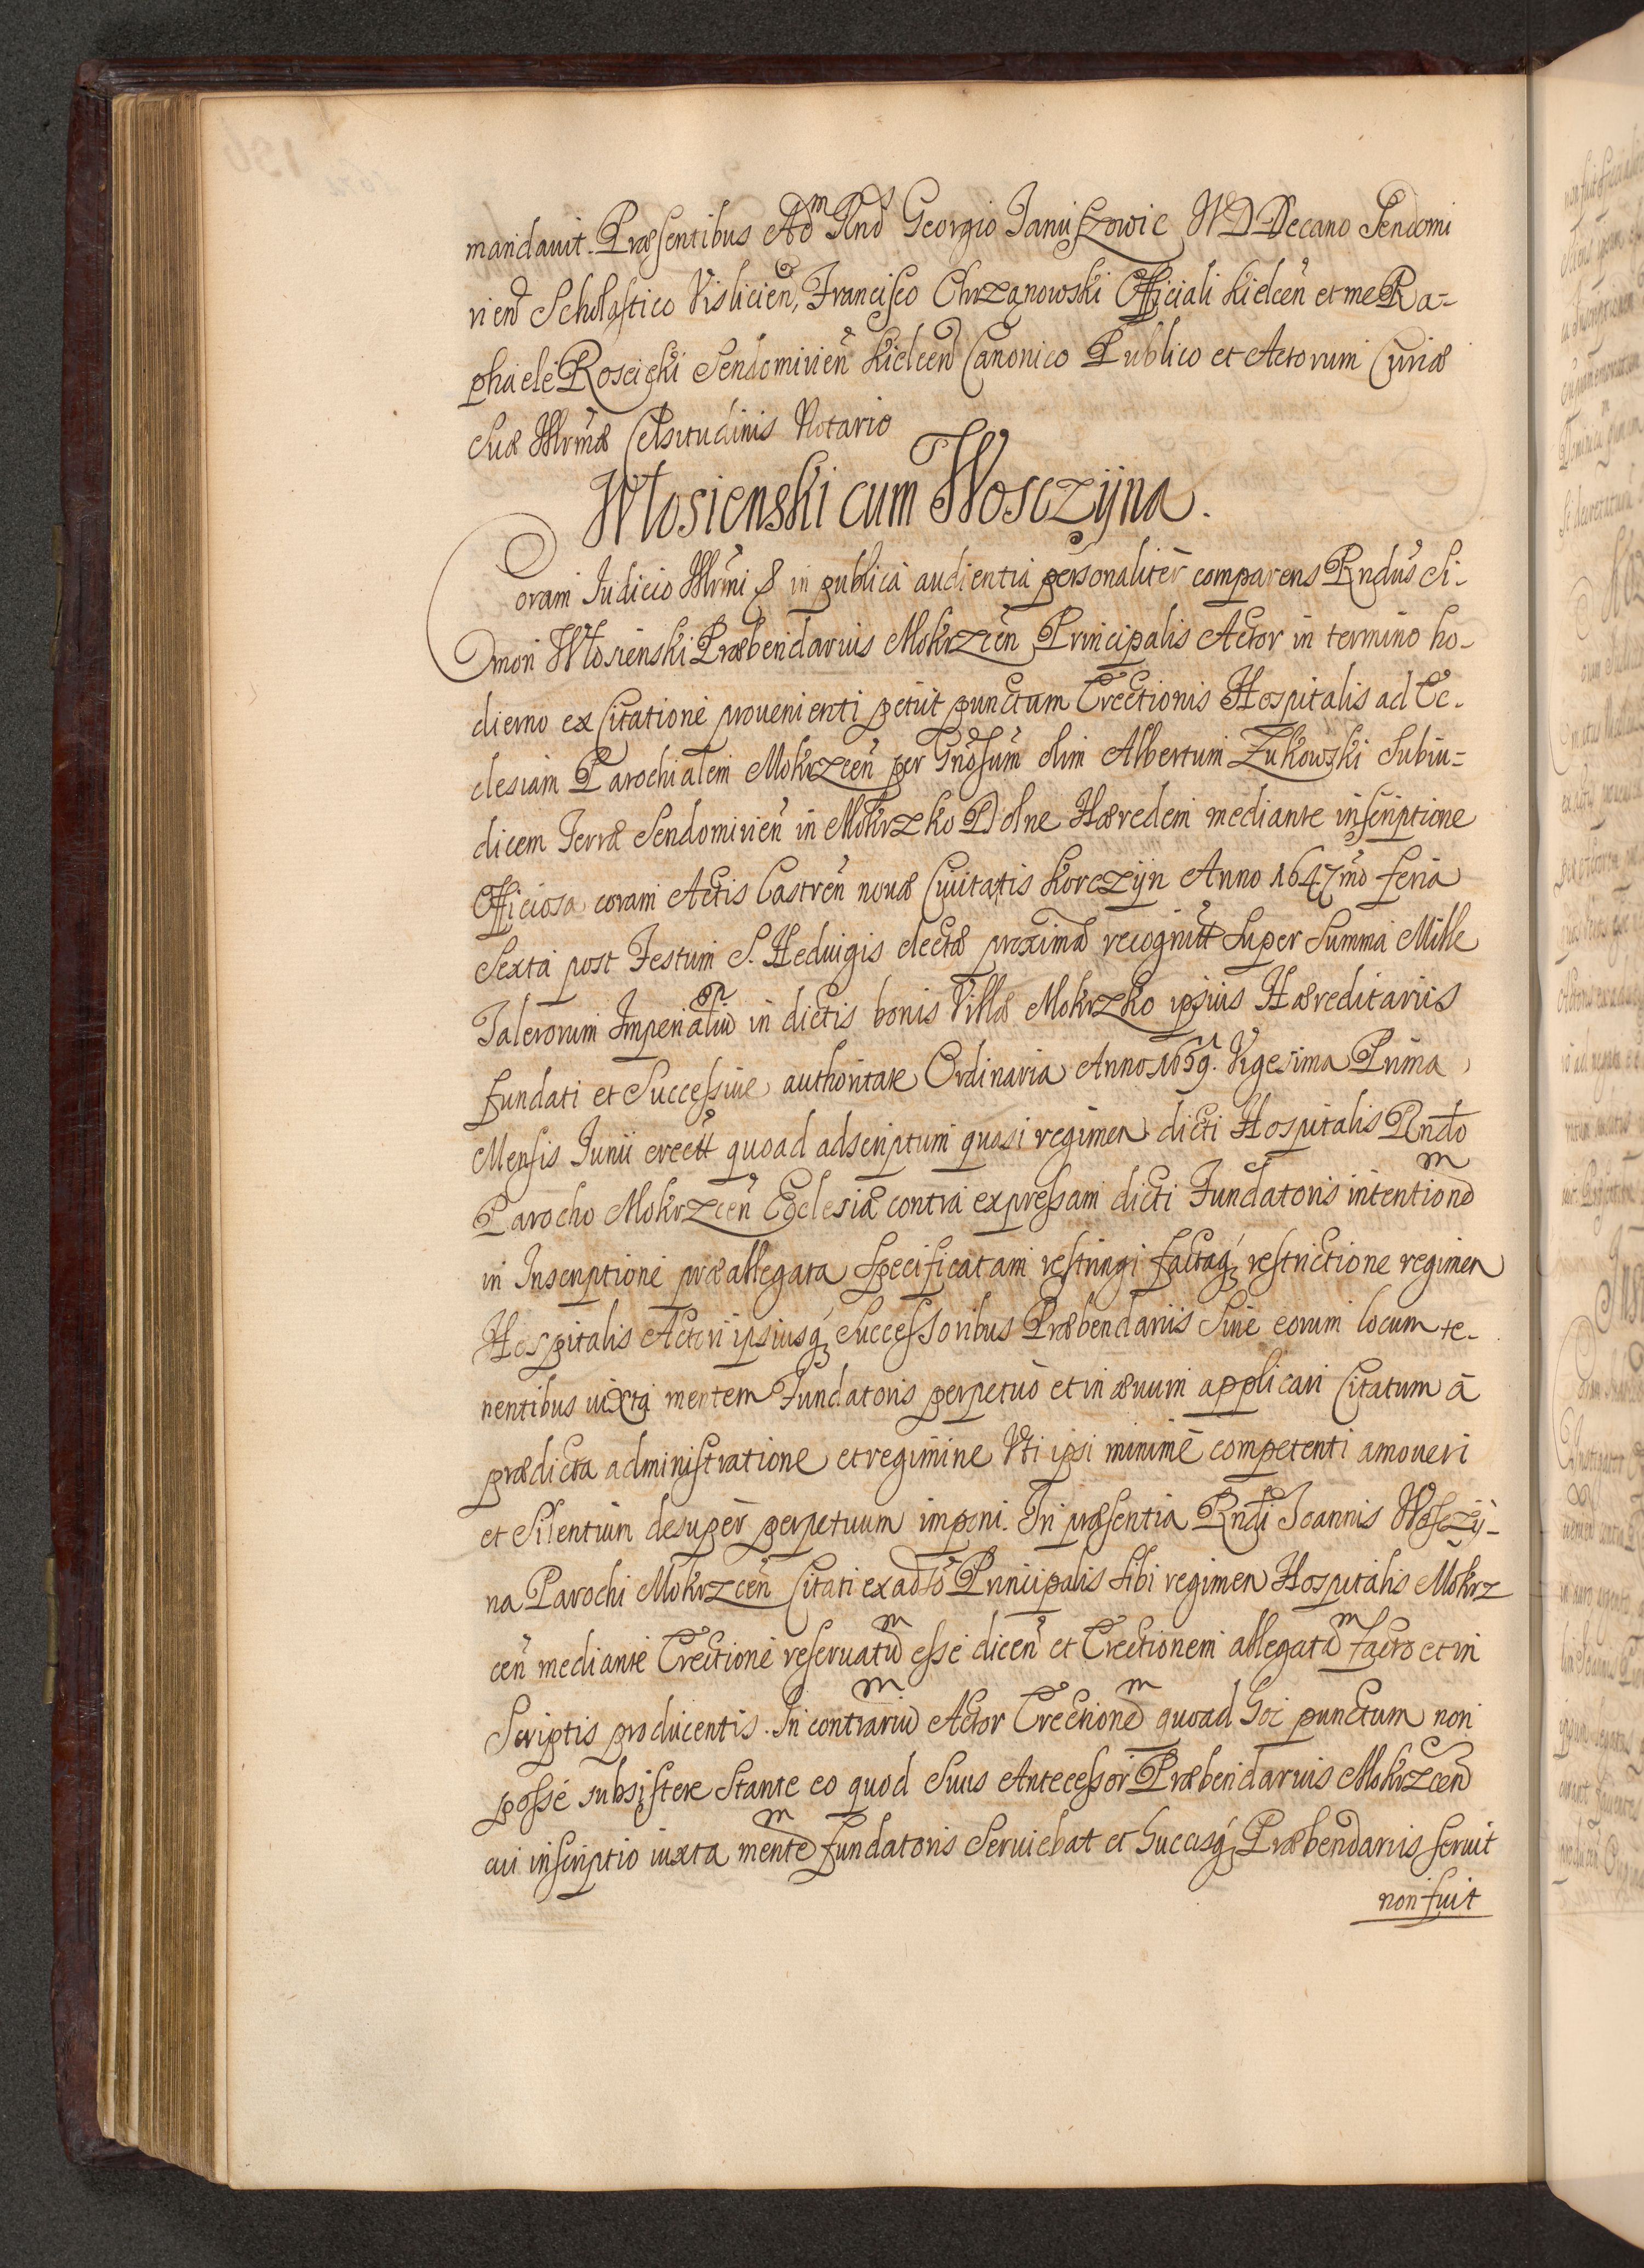 mandavit. Præsentibus Adm Rnds Georgio Januszowic UJD Decano Sendomi
rien Scholastico Vislicien, Francisco Chrzanowski Officiali Kielcen et me Ra-
phaele Roscicki Sendomirien Kielcen Canonico Publico et Actorum Curiæ
Suæ Illrmæ Celsitudinis Notario
Włosienski cum Wosczÿna.
Coram Iudicio Illrmi & in publica audientia personaliter comparens Rndus Si-
mon Włosienski Præbendarius Mokrzcen Principalis Actor in termino ho-
dierno ex Citatione provenienti petiit punctum Erectionis Hospitalis ad Ec-
clesiam Parochialem Mokrzcen per Gnosum olim Albertum Zukowski Subiu-
dicem Terræ Sendomirien in Mokrzko Dolne Hæredem mediante inscriptione
Officiosa coram Actis Castren novæ Civitatis Korczÿn Anno 1647mo feria
Sexta post Festum S. Heduigis electæ proxima recognitt super Summa Mille
Talerorum Imperialiu in dictis bonis Villæ Mokrzko ipsius Hæreditariis
fundati et Successive authoritate Ordinaria Anno 1659. Vigesima Prima
Mensis Junii erectt quoad adscriptum quasi regimen dicti Hospitalis Rndo
Parocho Mokrzcen Ecclesiæ contra expressam dicti Fundatoris intentionem
in Inscriptione præallegata Specificatam restringi factaq; restrictione regimen
Hospitalis Actori ipsiusq; Successoribus Præbendariis Sive eorum locum te-
nentibus iuxta mentem Fundatoris perpetuo et in ævum applicari Citatum a
prædicta administratione et regimine Uti ipsi minime competenti amoveri
et Silentium desuper perpetuum imponi. In præsentia Rndi Joannis Woscżÿ-
na Parochi Mokrzcen Citati ex adto Principalis Sibi regimen Hospitalis Mokrz
cen mediante Erectione reservatum esse dicen et Erectionem allegatam facto et in
Scriptis producentis. In contrarium Actor Erectionem quoad hoc punctum non
posse subsistere Stante eo quod Suus Antecessor Præbendarius Mokrzcen
cui inscriptio iuxta mentem fundatoris Serviebat et hucusq; Præbendariis servit
non fuit